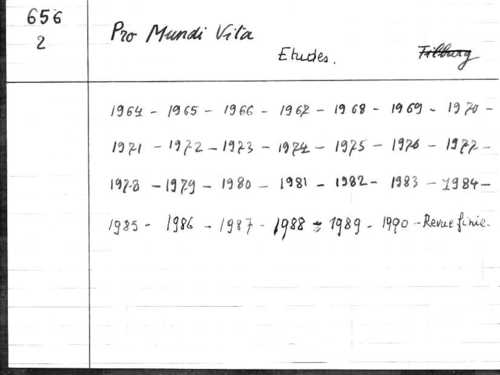 656
2
Pro Mundi Vita
Etudes. Tilburg
1964 - 1965 - 1966 - 1967 - 1968 - 1969 - 1970 -
1971 - 1972 - 1973 - 1974 - 1975 - 1976 - 1977 -
1978 - 1979 - 1980 - 1981 - 1982 - 1983 - 1984 -
1985 - 1986 - 1987 - 1988 - 1989 - 1990 - Revue finie.